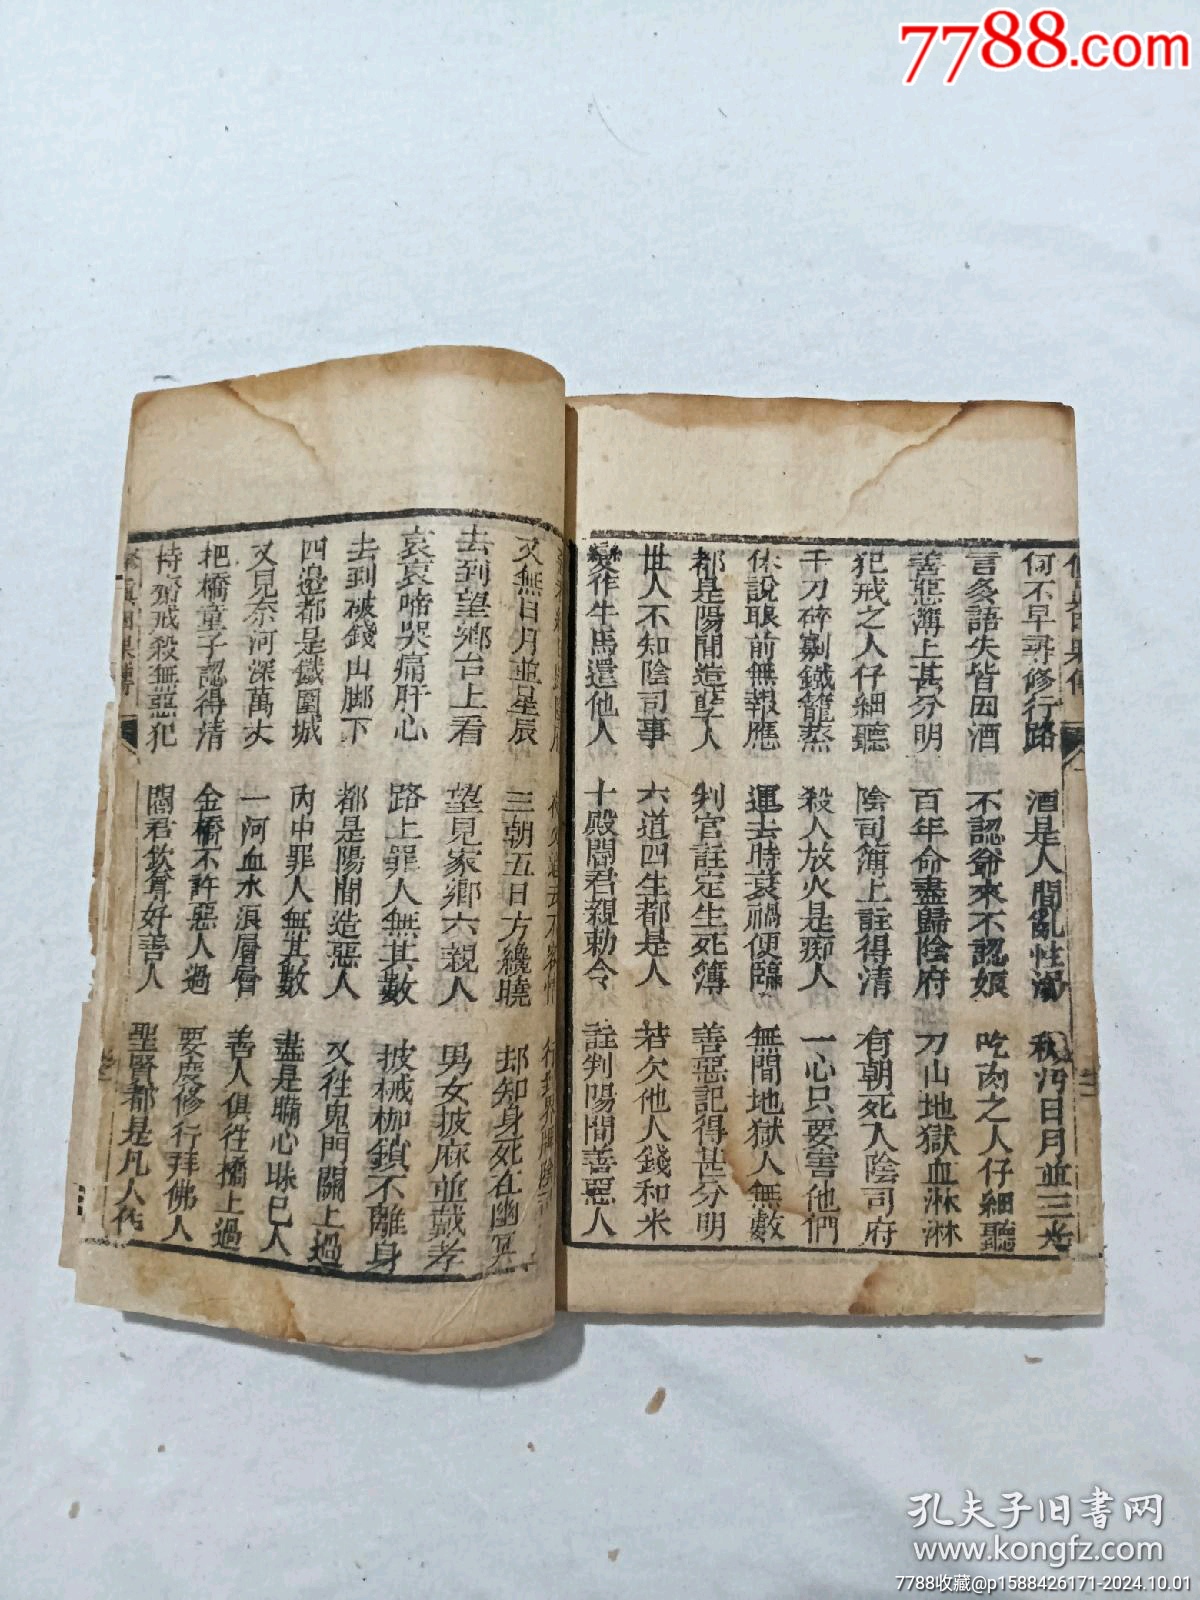 7788.com
何不早尋修行路 酒是人間亂性湯 日月並三光
言多語失皆因酒 不認爺來不認娘 吃肉之人仔細聽
善惡簿上甚分明 百年命盡歸陰府 刀山地獄血淋淋
犯戒之人仔細聽 陰司簿上註得清 有朝死入陰司府
千刀碎剮鐵籠蒸 殺人放火是痴人 一心只要害他們
休說眼前無報應 運去時衰禍便臨 無間地獄人無數
都是陽間造孽人 判官註定生死簿 善惡記得甚分明
世人不知陰司事 六道四生都是人 若欠他人錢和米
變作牛馬還他人 十殿閻君親勅令 註判陽間善惡人
又無日月並星辰 三朝五日方纔曉 却知身死在幽冥
去到望鄉台上看 望見家鄉六親人 男女披麻並戴孝
哀哀啼哭痛肝心 路上罪人無其數 披械枷鎖不離身
去到破錢山腳下 都是陽間造惡人 又往鬼門關上過
四邉都是鐵圍城 内中罪人無其數 盡是瞞心昧己人
又見奈河深萬丈 一河血水浪層層 善人俱往橋上過
把橋童子認得清 金橋不許惡人過 要度修行拜佛人
持齋戒殺無惡犯 閻君欽尊好善人 聖賢都是凡人作
孔夫子旧书网
www.kongfz.com
7788收藏@p1588426171-2024.10.01